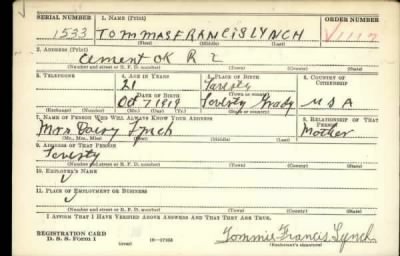 SERIAL NUMBER 1. NAME (Print) ORDER NUMBER
1533 TOMMAS FRANCIS LYNCH
(First) (Middle) (Last)
2. ADDRESS (Print)
Cement OK R 2
(Number and street or R. F. D. number) (Town) (County) (State)
3. TELEPHONE 4. AGE IN YEARS 5. PLACE OF BIRTH 6. COUNTRY OF CITIZENSHIP
21
DATE OF BIRTH (Town or county)
Oct 7 1919 Grady U S A
(Exchange) (Number) (Mo.) (Day) (Yr.) (State or country)
7. NAME OF PERSON WHO WILL ALWAYS KNOW YOUR ADDRESS 8. RELATIONSHIP OF THAT PERSON
Mrs Lynch Mother
(Mr., Mrs., Miss) (First) (Middle) (Last)
9. ADDRESS OF THAT PERSON
(Number and street or R. F. D. number) (Town) (County) (State)
10. EMPLOYER'S NAME
11. PLACE OF EMPLOYMENT OR BUSINESS
(Number and street or R. F. D. number) (Town) (County) (State)
I AFFIRM THAT I HAVE VERIFIED ABOVE ANSWERS AND THAT THEY ARE TRUE.
REGISTRATION CARD
D. S. S. Form 1 (over) 16—17105 Tommie Francis Lynch
(Registrant's signature)